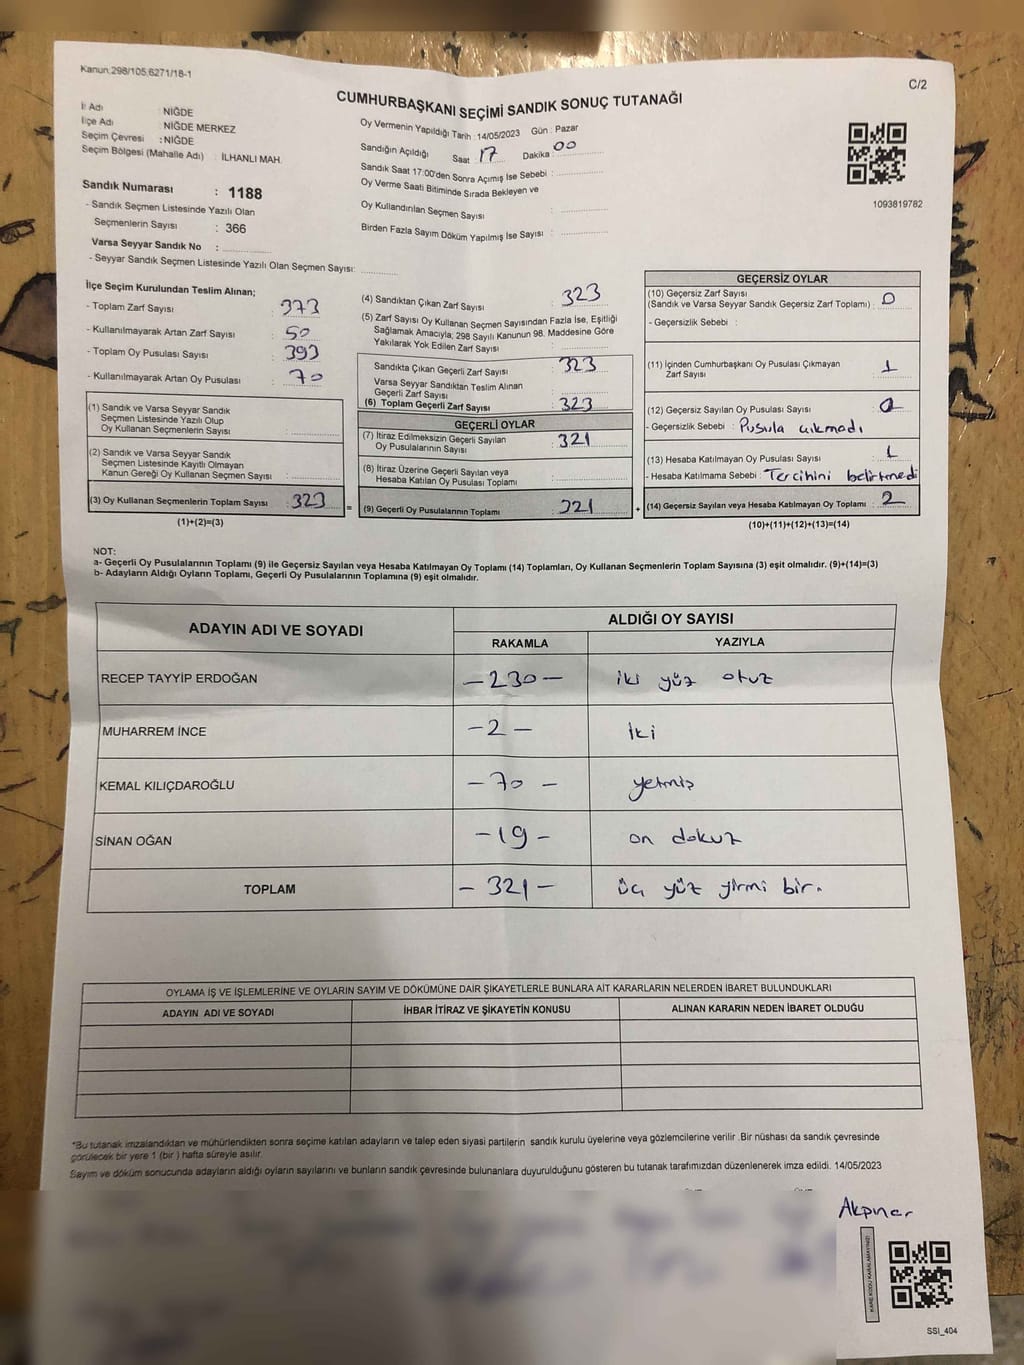 Kanun.298/105,6271/18-1
C/2
CUMHURBAŞKANI SEÇİMİ SANDIK SONUÇ TUTANAĞI
İl Adı : NİĞDE
İlçe Adı : NİĞDE MERKEZ
Seçim Çevresi : NİĞDE
Seçim Bölgesi (Mahalle Adı) : İLHANLI MAH.
Oy Vermenin Yapıldığı Tarih : 14/05/2023 Gün : Pazar
Sandığın Açıldığı Saat : 17 Dakika : 00
Sandık Saat 17:00'den Sonra Açımış İse Sebebi :
Oy Verme Saati Bitiminde Sırada Bekleyen ve
Oy Kullandırılan Seçmen Sayısı :
Birden Fazla Sayım Döküm Yapılmış İse Sayısı :
1093819782
Sandık Numarası : 1188
- Sandık Seçmen Listesinde Yazılı Olan
Seçmenlerin Sayısı : 366
Varsa Seyyar Sandık No :
- Seyyar Sandık Seçmen Listesinde Yazılı Olan Seçmen Sayısı:
İlçe Seçim Kurulundan Teslim Alınan;
- Toplam Zarf Sayısı : 373
- Kullanılmayarak Artan Zarf Sayısı : 50
- Toplam Oy Pusulası Sayısı : 393
- Kullanılmayarak Artan Oy Pusulası : 70
(1) Sandık ve Varsa Seyyar Sandık
Seçmen Listesinde Yazılı Olup
Oy Kullanan Seçmenlerin Sayısı :
(2) Sandık ve Varsa Seyyar Sandık
Seçmen Listesinde Kayıtlı Olmayan
Kanun Gereği Oy Kullanan Seçmen Sayısı :
(3) Oy Kullanan Seçmenlerin Toplam Sayısı : 323
(1)+(2)=(3)
(4) Sandıktan Çıkan Zarf Sayısı : 323
(5) Zarf Sayısı Oy Kullanan Seçmen Sayısından Fazla İse, Eşitliği
Sağlamak Amacıyla; 298 Sayılı Kanunun 98. Maddesine Göre
Yakılarak Yok Edilen Zarf Sayısı :
Sandıkta Çıkan Geçerli Zarf Sayısı : 323
Varsa Seyyar Sandıktan Teslim Alınan
Geçerli Zarf Sayısı :
(6) Toplam Geçerli Zarf Sayısı : 323
GEÇERLİ OYLAR
(7) İtiraz Edilmeksizin Geçerli Sayılan
Oy Pusulasının Sayısı : 321
(8) İtiraz Üzerine Geçerli Sayılan veya
Hesaba Katılan Oy Pusulası Toplamı :
= (9) Geçerli Oy Pusulalarının Toplamı : 321 +
GEÇERSİZ OYLAR
(10) Geçersiz Zarf Sayısı
(Sandık ve Varsa Seyyar Sandık Geçersiz Zarf Toplamı) : 0
- Geçersizlik Sebebi :
(11) İçinden Cumhurbaşkanı Oy Pusulası Çıkmayan
Zarf Sayısı : 1
(12) Geçersiz Sayılan Oy Pusulası Sayısı :
- Geçersizlik Sebebi : Pusula çıkmadı
(13) Hesaba Katılmayan Oy Pusulası Sayısı : 1
- Hesaba Katılmama Sebebi : Tercihini belirtmedi
(14) Geçersiz Sayılan veya Hesaba Katılmayan Oy Toplamı : 2
(10)+(11)+(12)+(13)=(14)
NOT:
a- Geçerli Oy Pusulalarının Toplamı (9) ile Geçersiz Sayılan veya Hesaba Katılmayan Oy Toplamı (14) Toplamları, Oy Kullanan Seçmenlerin Toplam Sayısına (3) eşit olmalıdır. (9)+(14)=(3)
b- Adayların Aldığı Oyların Toplamı, Geçerli Oy Pusulalarının Toplamına (9) eşit olmalıdır.
ADAYIN ADI VE SOYADI
ALDIĞI OY SAYISI
RAKAMLA YAZIYLA
RECEP TAYYİP ERDOĞAN - 230 - iki yüz otuz
MUHARREM İNCE - 2 - iki
KEMAL KILIÇDAROĞLU - 70 - yetmiş
SİNAN OĞAN - 19 - on dokuz
TOPLAM - 321 - üç yüz yirmi bir.
OYLAMA İŞ VE İŞLEMLERİNE VE OYLARIN SAYIM VE DÖKÜMÜNE DAİR ŞİKAYETLERLE BUNLARA AİT KARARLARIN NELERDEN İBARET BULUNDUKLARI
ADAYIN ADI VE SOYADI İHBAR İTİRAZ VE ŞİKAYETİN KONUSU ALINAN KARARIN NEDEN İBARET OLDUĞU
*Bu tutanak imzalandıktan ve mühürlendikten sonra seçime katılan adayların ve talep eden siyasi partilerin sandık kurulu üyelerine veya gözlemcilerine verilir .Bir nüshası da sandık çevresinde
görülecek bir yere 1 (bir ) hafta süreyle asılır.
Sayım ve döküm sonucunda adayların aldığı oyların sayılarını ve bunların sandık çevresinde bulunanlara duyurulduğunu gösteren bu tutanak tarafımızdan düzenlenerek imza edildi. 14/05/2023
Akpınar
KARE KODU KARALAMAYINIZ!
SSI_404